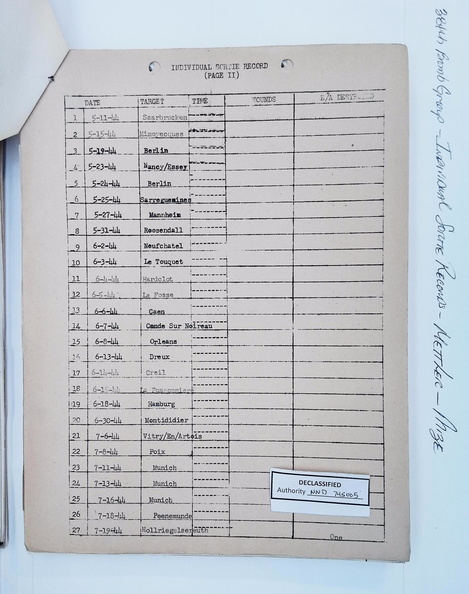 INDIVIDUAL SORTIE RECORD
(PAGE II)
DATE TARGET TIME WOUNDS E/A DESTROYED
1 5-11-44 Saarbrucken
2 5-15-44 Mimoyecques
3 5-19-44 Berlin
4 5-23-44 Nancy/Essey
5 5-24-44 Berlin
6 5-25-44 Sarreguemines
7 5-27-44 Mannheim
8 5-31-44 Roosendall
9 6-2-44 Neufchatel
10 6-3-44 Le Touquet
11 6-4-44 Hardelot
12 6-5-44 La Fosse
13 6-6-44 Caen
14 6-7-44 Conde Sur Noireau
15 6-8-44 Orleans
16 6-13-44 Dreux
17 6-14-44 Creil
18 6-15-44 La
19 6-18-44 Hamburg
20 6-30-44 Montididier
21 7-6-44 Vitry/En/Artois
22 7-8-44 Poix
23 7-11-44 Munich
24 7-13-44 Munich
25 7-16-44 Munich
26 7-18-44 Peenemunde
27 7-19-44 One
DECLASSIFIED
Authority NND 745005
384th Bomb Group - Individual Sortie Records - Mettler - Mize